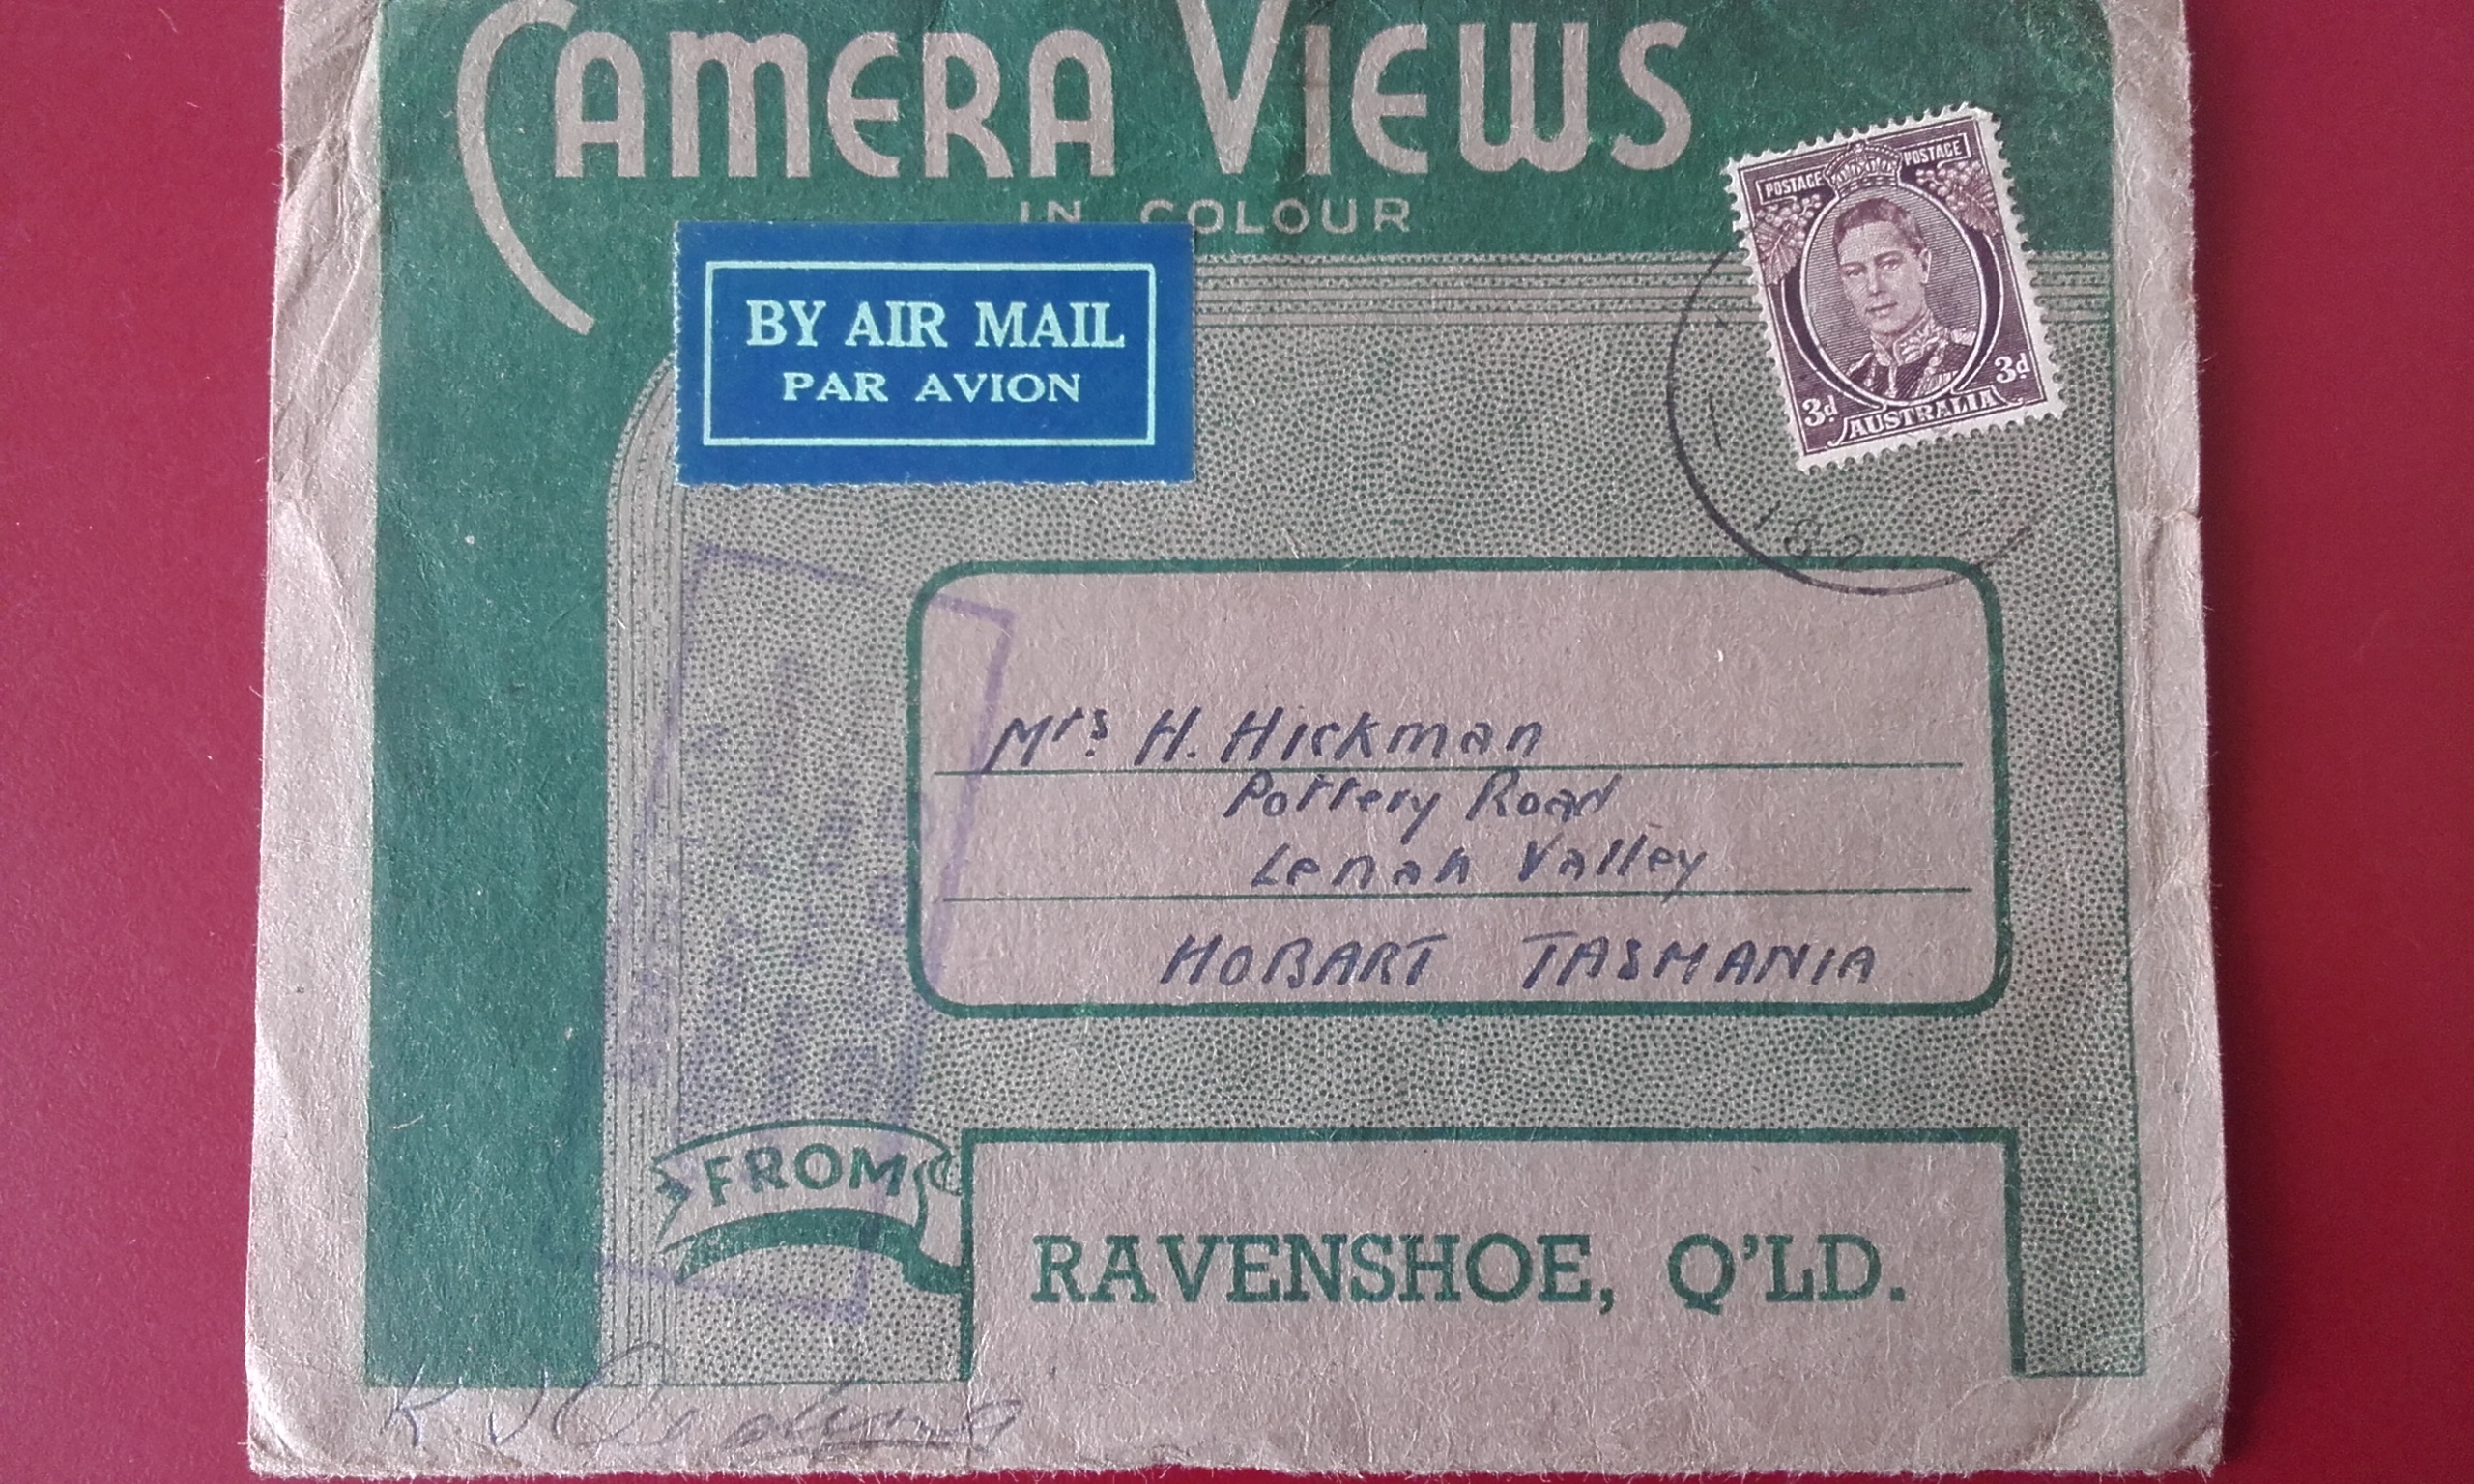 CAMERA VIEWS
IN COLOUR
POSTAGE POSTAGE
3d 3d
AUSTRALIA
BY AIR MAIL
PAR AVION
Mrs. H. Hickman
Pottery Road
Lenah Valley
HOBART TASMANIA
FROM
RAVENSHOE, Q'LD.